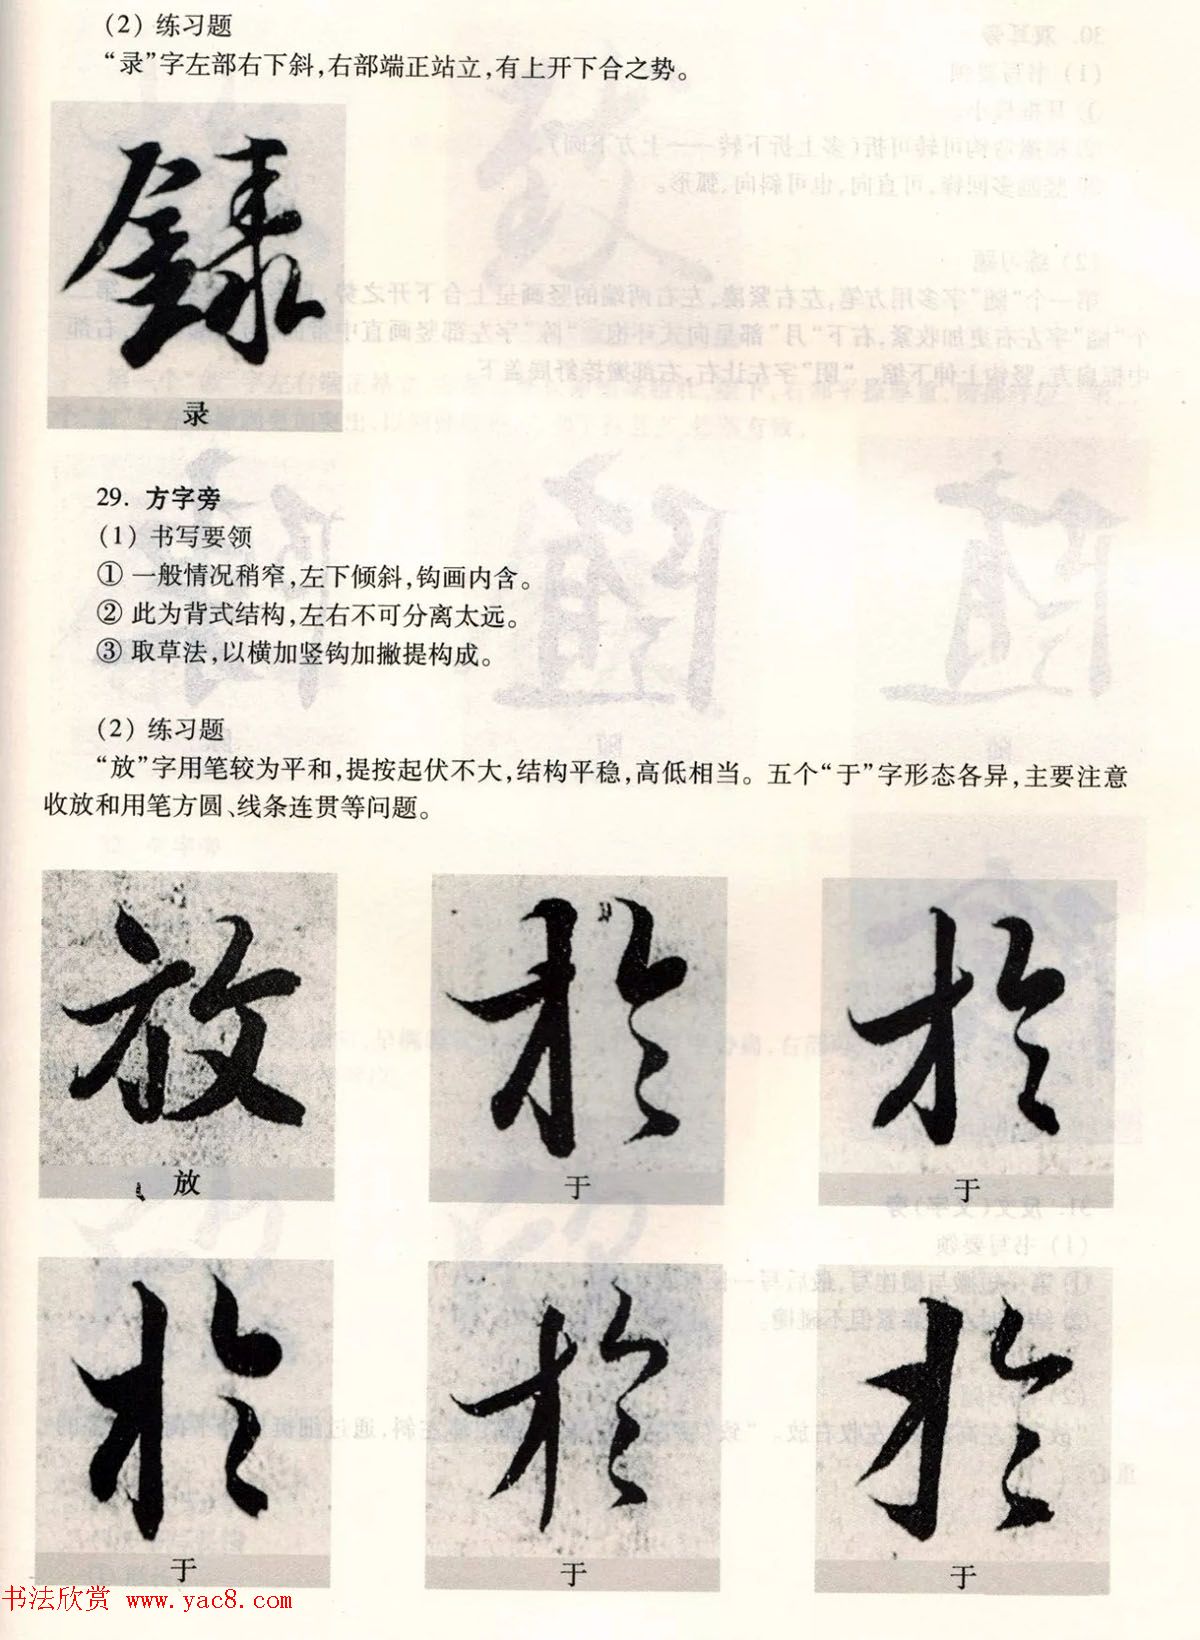 (2) 练习题
“录”字左部右下斜,右部端正站立,有上开下合之势。
錄
录
29. 方字旁
(1) 书写要领
① 一般情况稍窄,左下倾斜,钩画内含。
② 此为背式结构,左右不可分离太远。
③ 取草法,以横加竖钩加撇提构成。
(2) 练习题
“放”字用笔较为平和,提按起伏不大,结构平稳,高低相当。五个“于”字形态各异,主要注意
收放和用笔方圆、线条连贯等问题。
放 於 於
放 于 于
於 於 於
于 于 于
书法欣赏 www.yac8.com